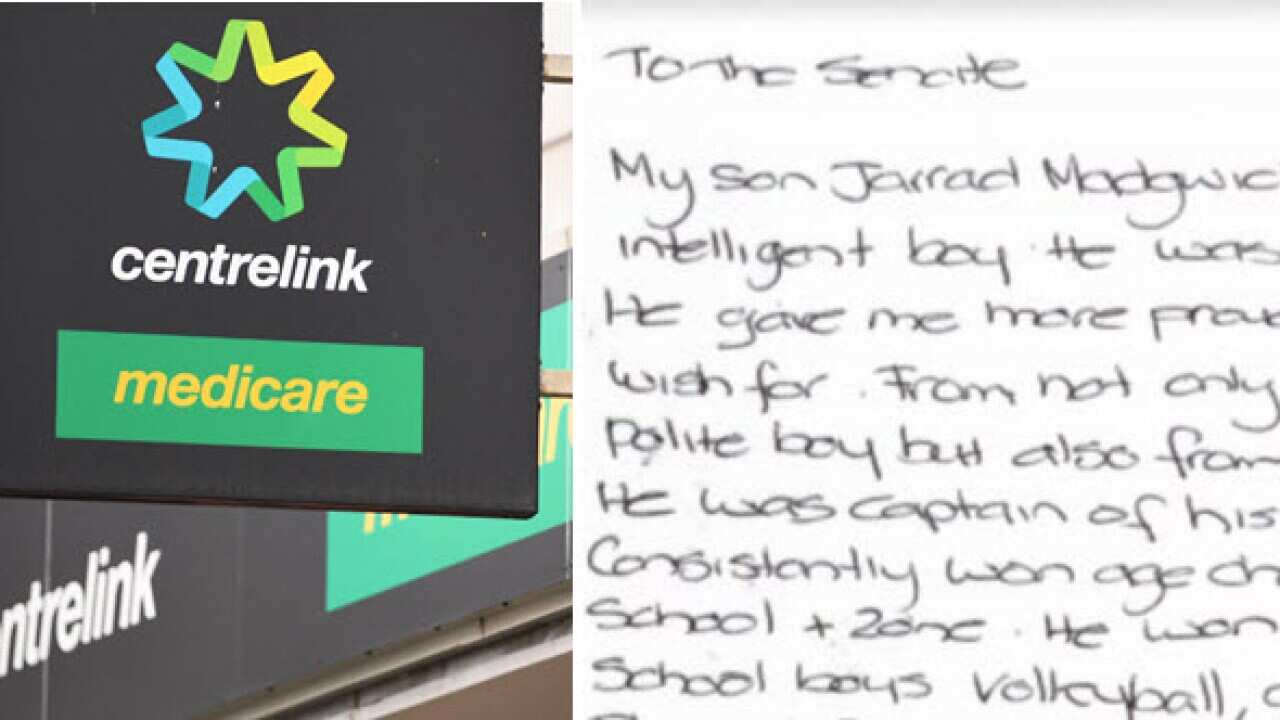 centrelink
medicare
ntrelink
To the Senate
My son Jarrad Madgwic
intelligent boy. He was
He gave me more prou
wish for. From not only
Polite boy but also from
He was captain of his
Consistantly won age ch
School + Zone. He won
School boys Volleyball,